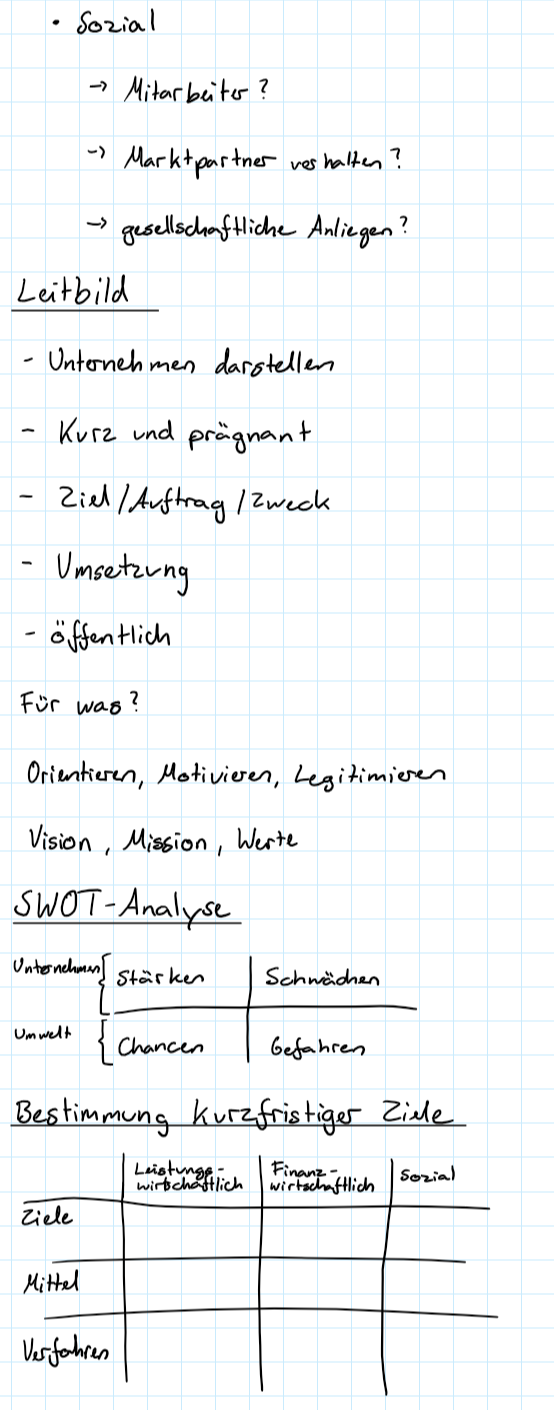 • Sozial
→ Mitarbeiter?
→ Marktpartner verhalten?
→ gesellschaftliche Anliegen?
Leitbild
- Unternehmen darstellen
- Kurz und prägnant
- Ziel/Auftrag/Zweck
- Umsetzung
- öffentlich
Für was?
Orientieren, Motivieren, Legitimieren
Vision, Mission, Werte
SWOT-Analyse
Unternehmen { Stärken | Schwächen
Umwelt { Chancen | Gefahren
Bestimmung kurzfristiger Ziele
Leistungs-wirtschaftlich | Finanz-wirtschaftlich | Sozial
Ziele
Mittel
Verfahren